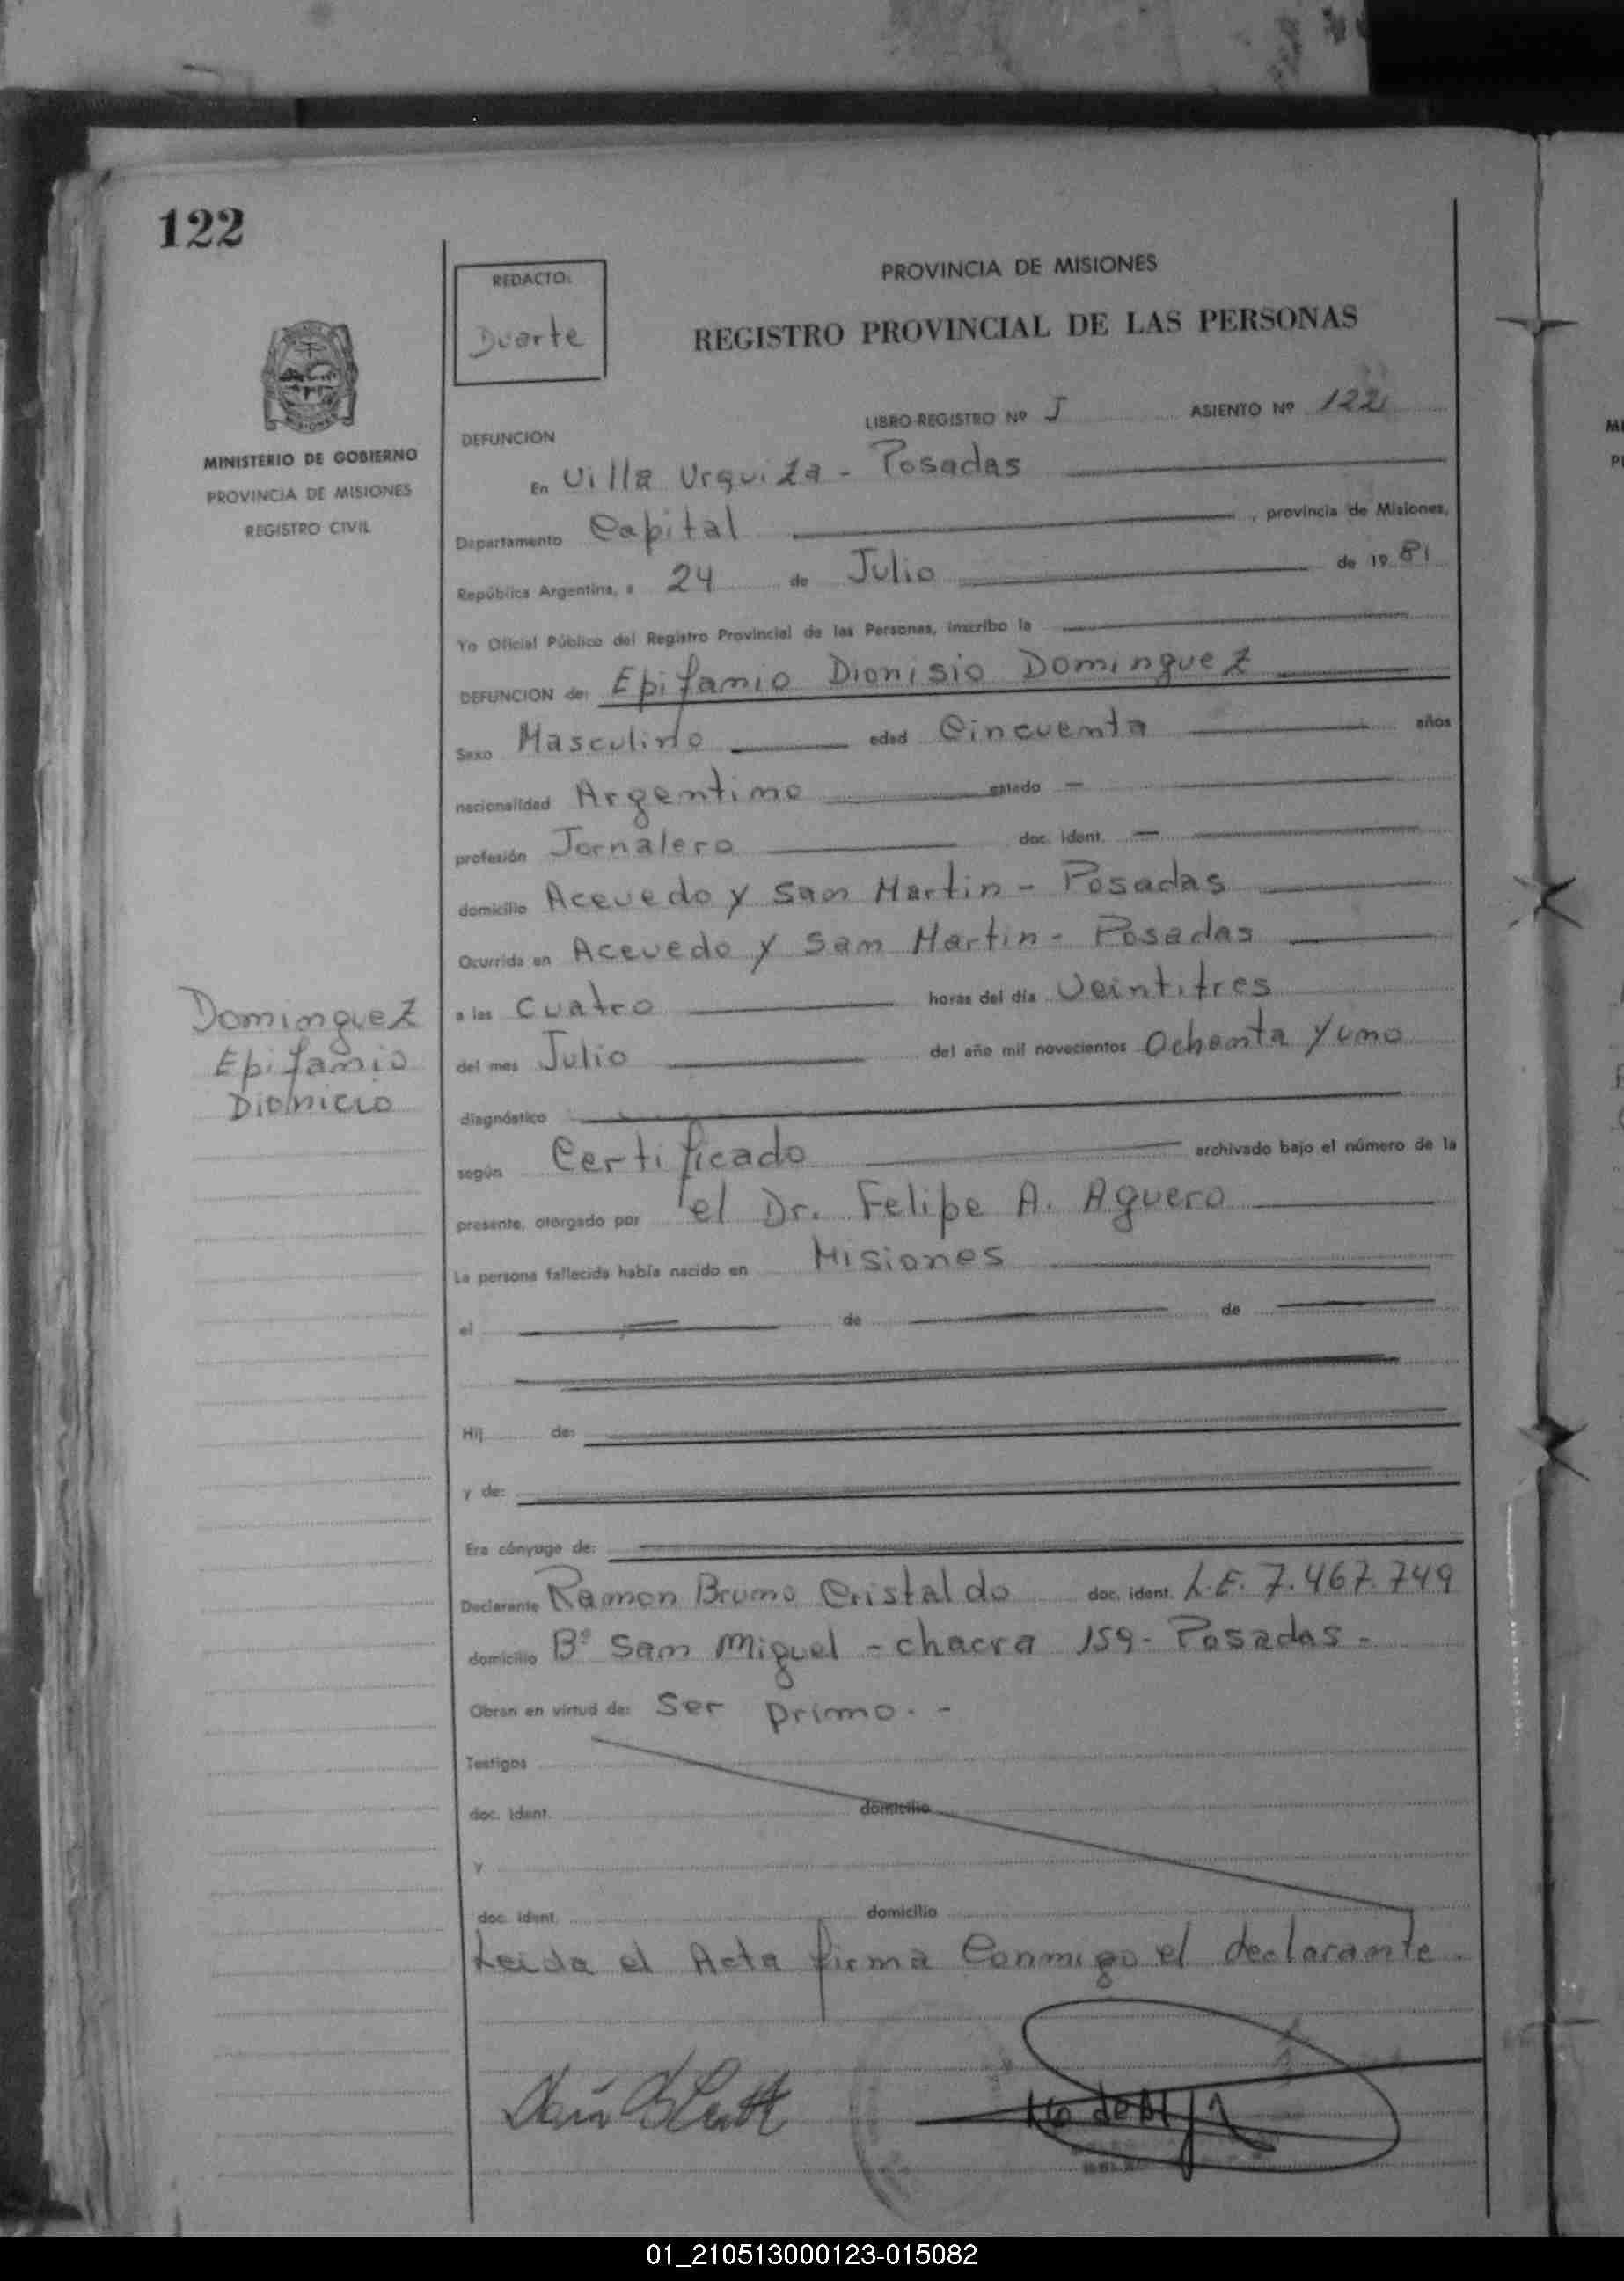 122
REDACTO:
Duarte
PROVINCIA DE MISIONES
REGISTRO PROVINCIAL DE LAS PERSONAS
MINISTERIO DE GOBIERNO
PROVINCIA DE MISIONES
REGISTRO CIVIL
LIBRO-REGISTRO Nº J ASIENTO Nº 122
DEFUNCION
En Villa Urquiza - Posadas
Departamento Capital, provincia de Misiones,
República Argentina, a 24 de Julio de 1981
Yo Oficial Público del Registro Provincial de las Personas, inscribo la
DEFUNCION de: Epifanio Dionisio Dominguez
Sexo Masculino edad Cincuenta años
nacionalidad Argentino estado -
profesión Jornalero doc. ident. -
domicilio Acevedo y San Martin - Posadas
Ocurrida en Acevedo y San Martin - Posadas
Dominguez
Epifanio
Dionicio
a las cuatro horas del día Veintitres
del mes Julio del año mil novecientos Ochenta y uno
diagnóstico
según Certificado archivado bajo el número de la
presente, otorgado por el Dr. Felipe A. Aguero
La persona fallecida había nacido en Misiones
el de de
Hij de:
y de:
Era cónyuge de:
Declarante Ramon Bruno Cristaldo doc. ident. L.E. 7.467.749
domicilio Bº San Miguel - chacra 159 - Posadas -
Obran en virtud de: Ser primo. -
Testigos
doc. ident. domicilio
y
doc. ident. domicilio
Leida el Acta firma Conmigo el declarante.
01_210513000123-015082